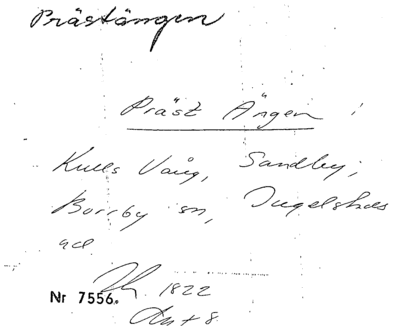 Prästängen
Präst Ängen i
Kulls Vång, Sandby,
Borrby sn, Ingelstads
hd
1822
Nr 7556.
Akt 8